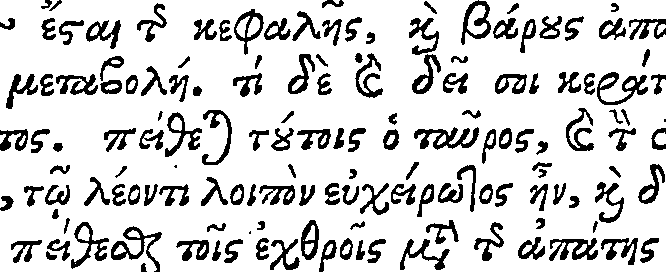 ἔσται τῆς κεφαλῆς, καὶ βάρους ἀπα
μεταβολή. τί δὲ καὶ δεῖ σοι κεράτ
τος. πείθεται τούτοις ὁ ταῦρος, καὶ τὴν
, τῷ λέοντι λοιπὸν εὐχείρωτος ἦν, καὶ δ
πείθεσθαι τοῖς ἐχθροῖς μετὰ τῆς ἀπάτης